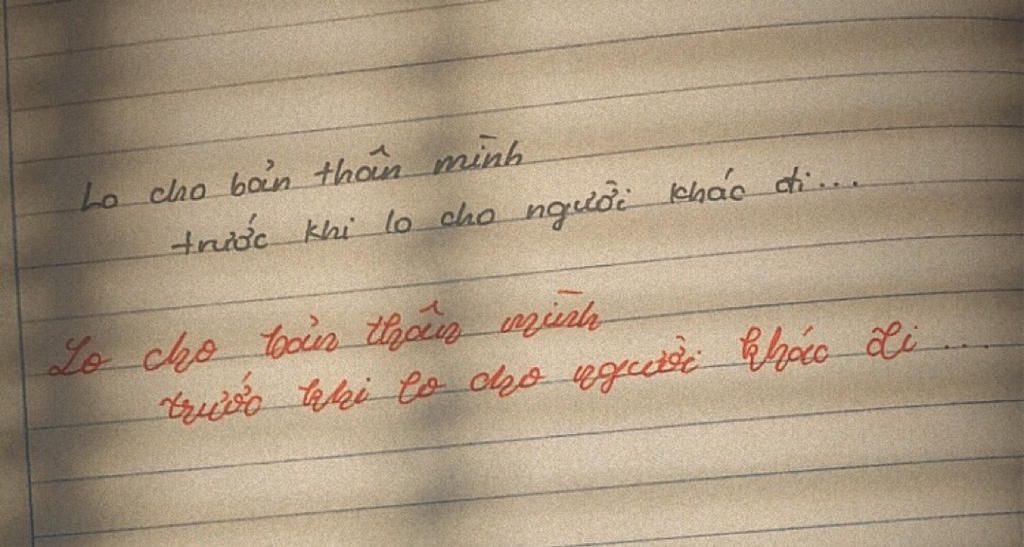 Lo cho bản thân mình
trước khi lo cho người khác đi...
Lo cho bản thân mình
trước khi lo cho người khác đi...